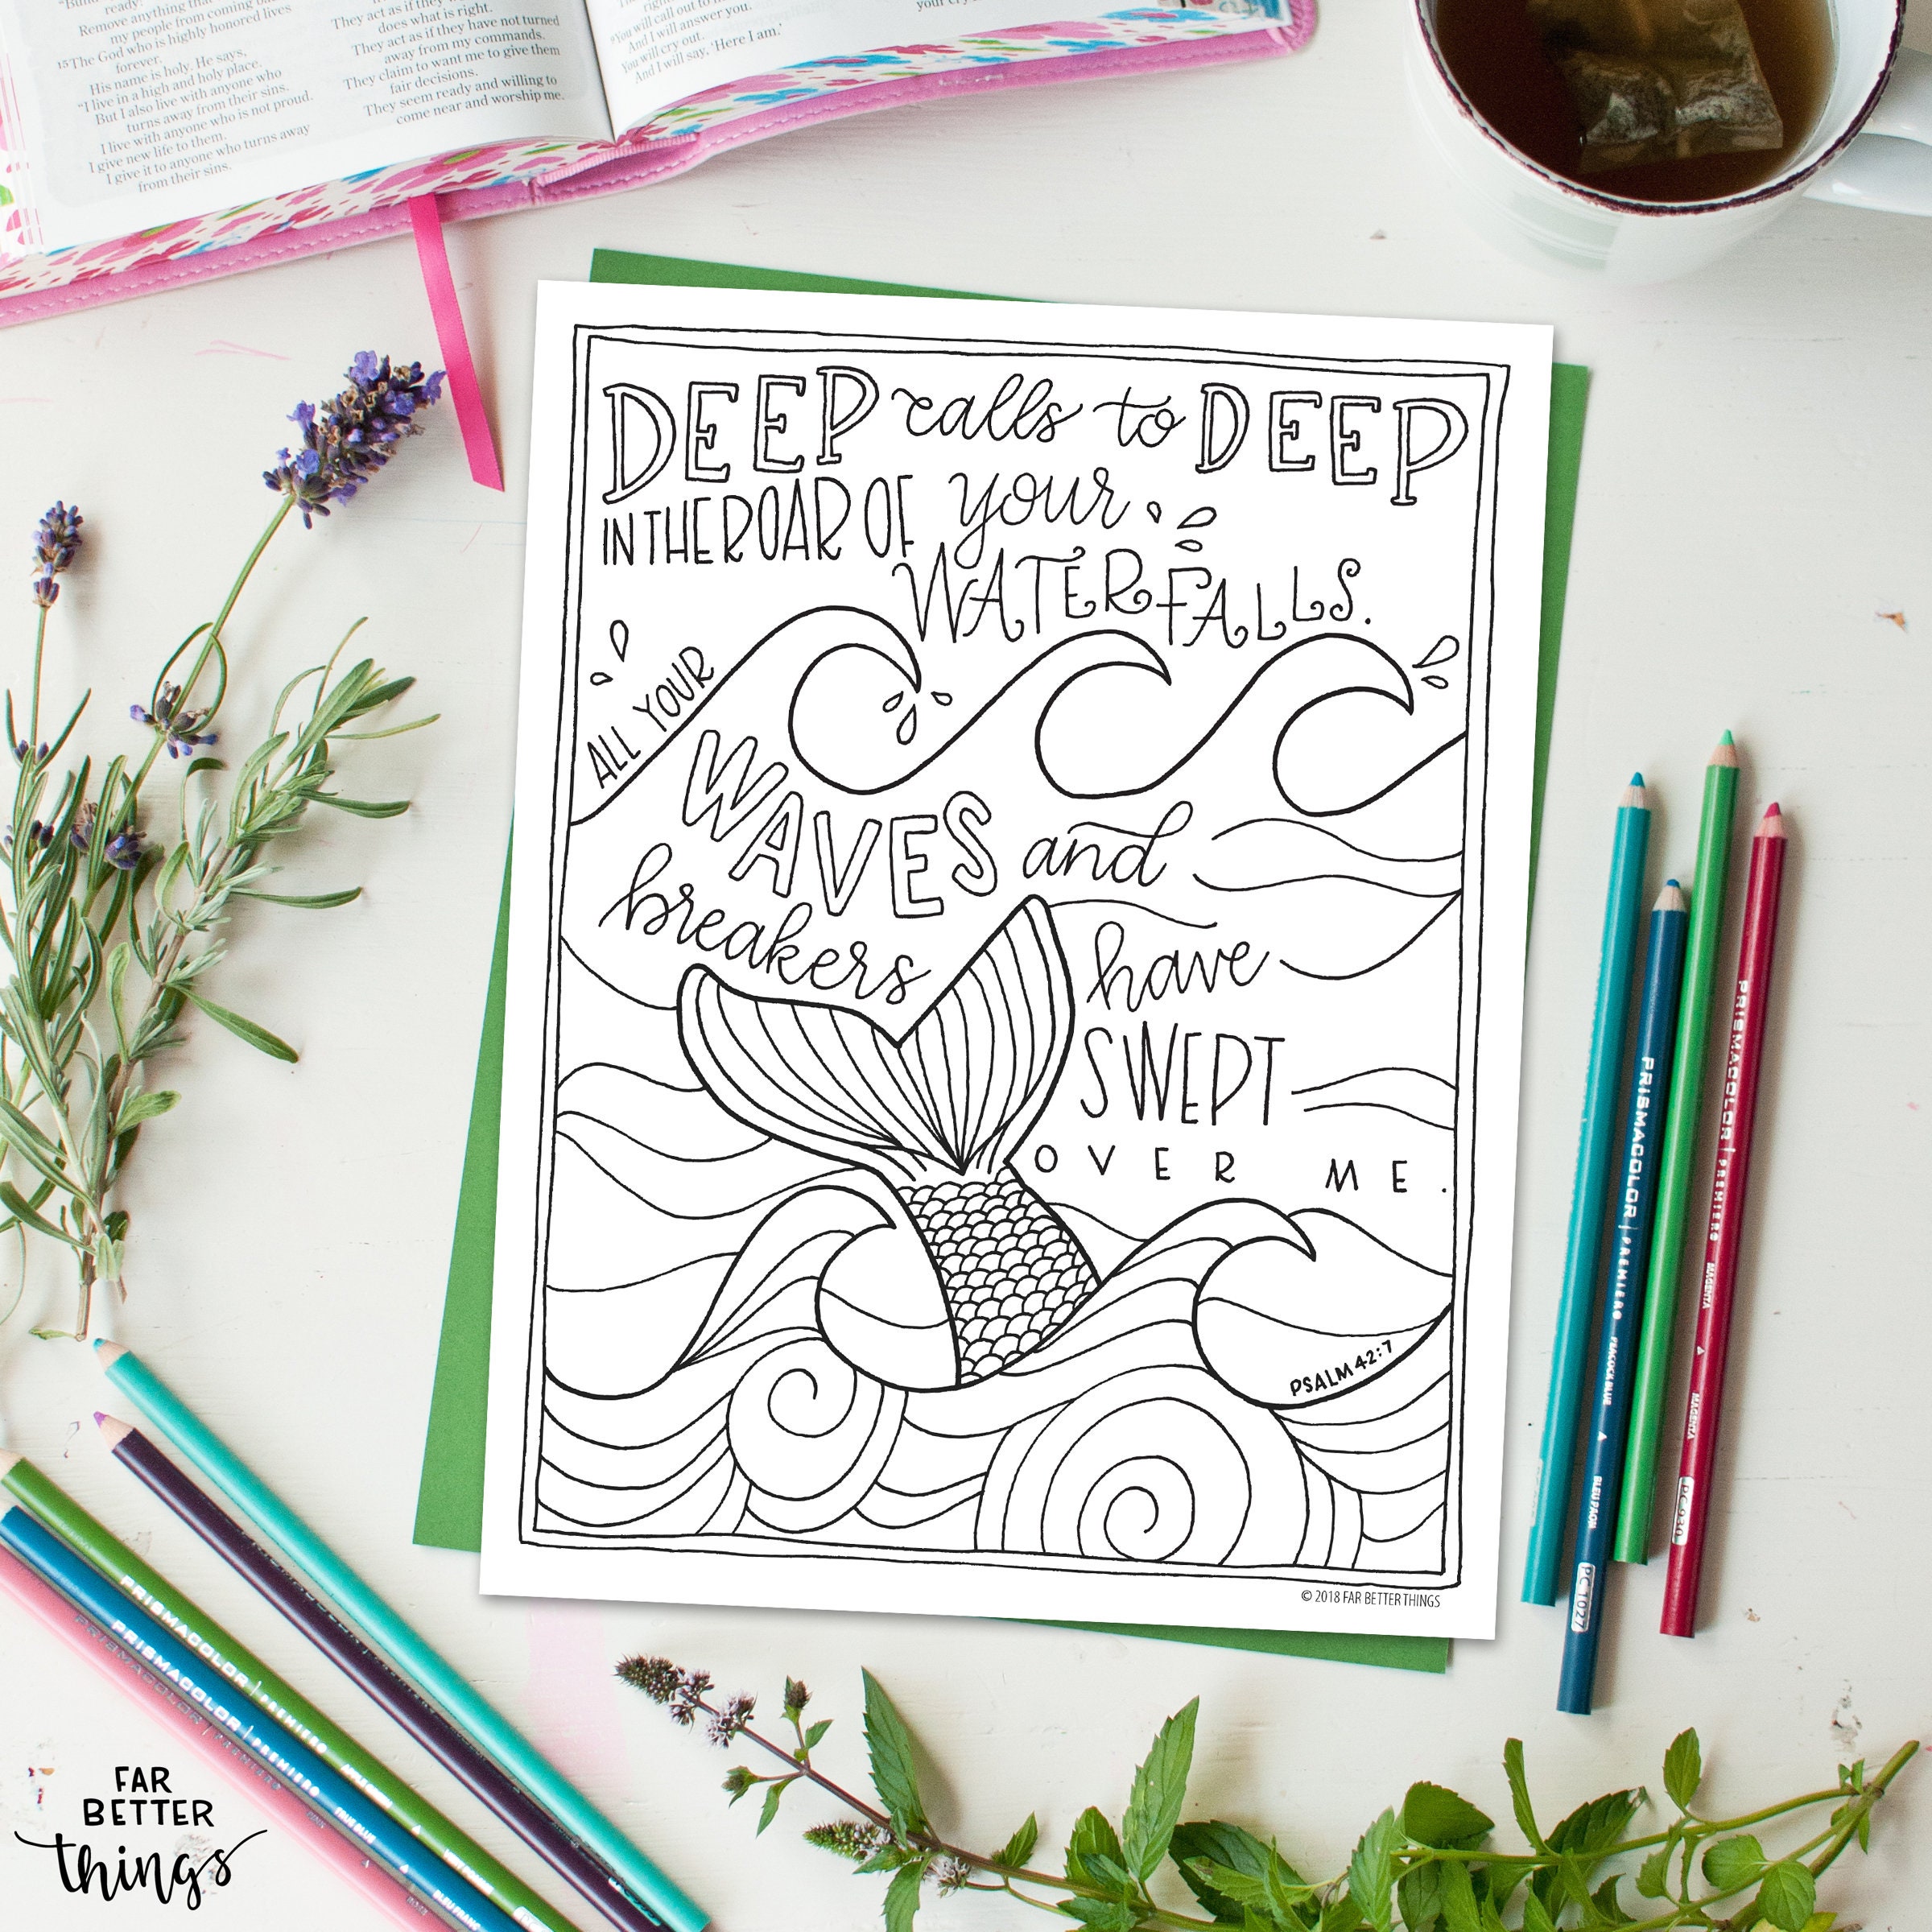 ready!
Remove anything that
my people from coming
The God who is highly honored lives
15
forever.
His name is holy. He says,
"I live in a high and holy place.
But I also live with anyone who
turns away from their sins.
I live with anyone who is not proud.
I give new life to them.
I give it to anyone who turns away
from their sins.
They act as if they
does what is right.
They act as if they have not turned
away from my commands.
They claim to want me to give them
fair decisions.
They seem ready and willing to
come near and worship me.
"You will call out to
And I will answer you.
You will cry out.
And I will say, 'Here I am.'
DEEP calls to DEEP
IN THE ROAR OF your
WATERFALLS.
ALL YOUR
WAVES and
breakers
have
SWEPT
OVER ME.
PSALM 42:7
© 2018 FAR BETTER THINGS
PRISMACOLOR | PREMIER
MAGENTA
MAGENTA
PC 930
PRISMACOLOR | PREMIER
BLEU PAON
PC 1027
PRISMACOLOR | PREMIER
PRISMACOLOR | PREMIER
TRUE BLUE
PRISMACOLOR | PREMIER
FAR
BETTER
things